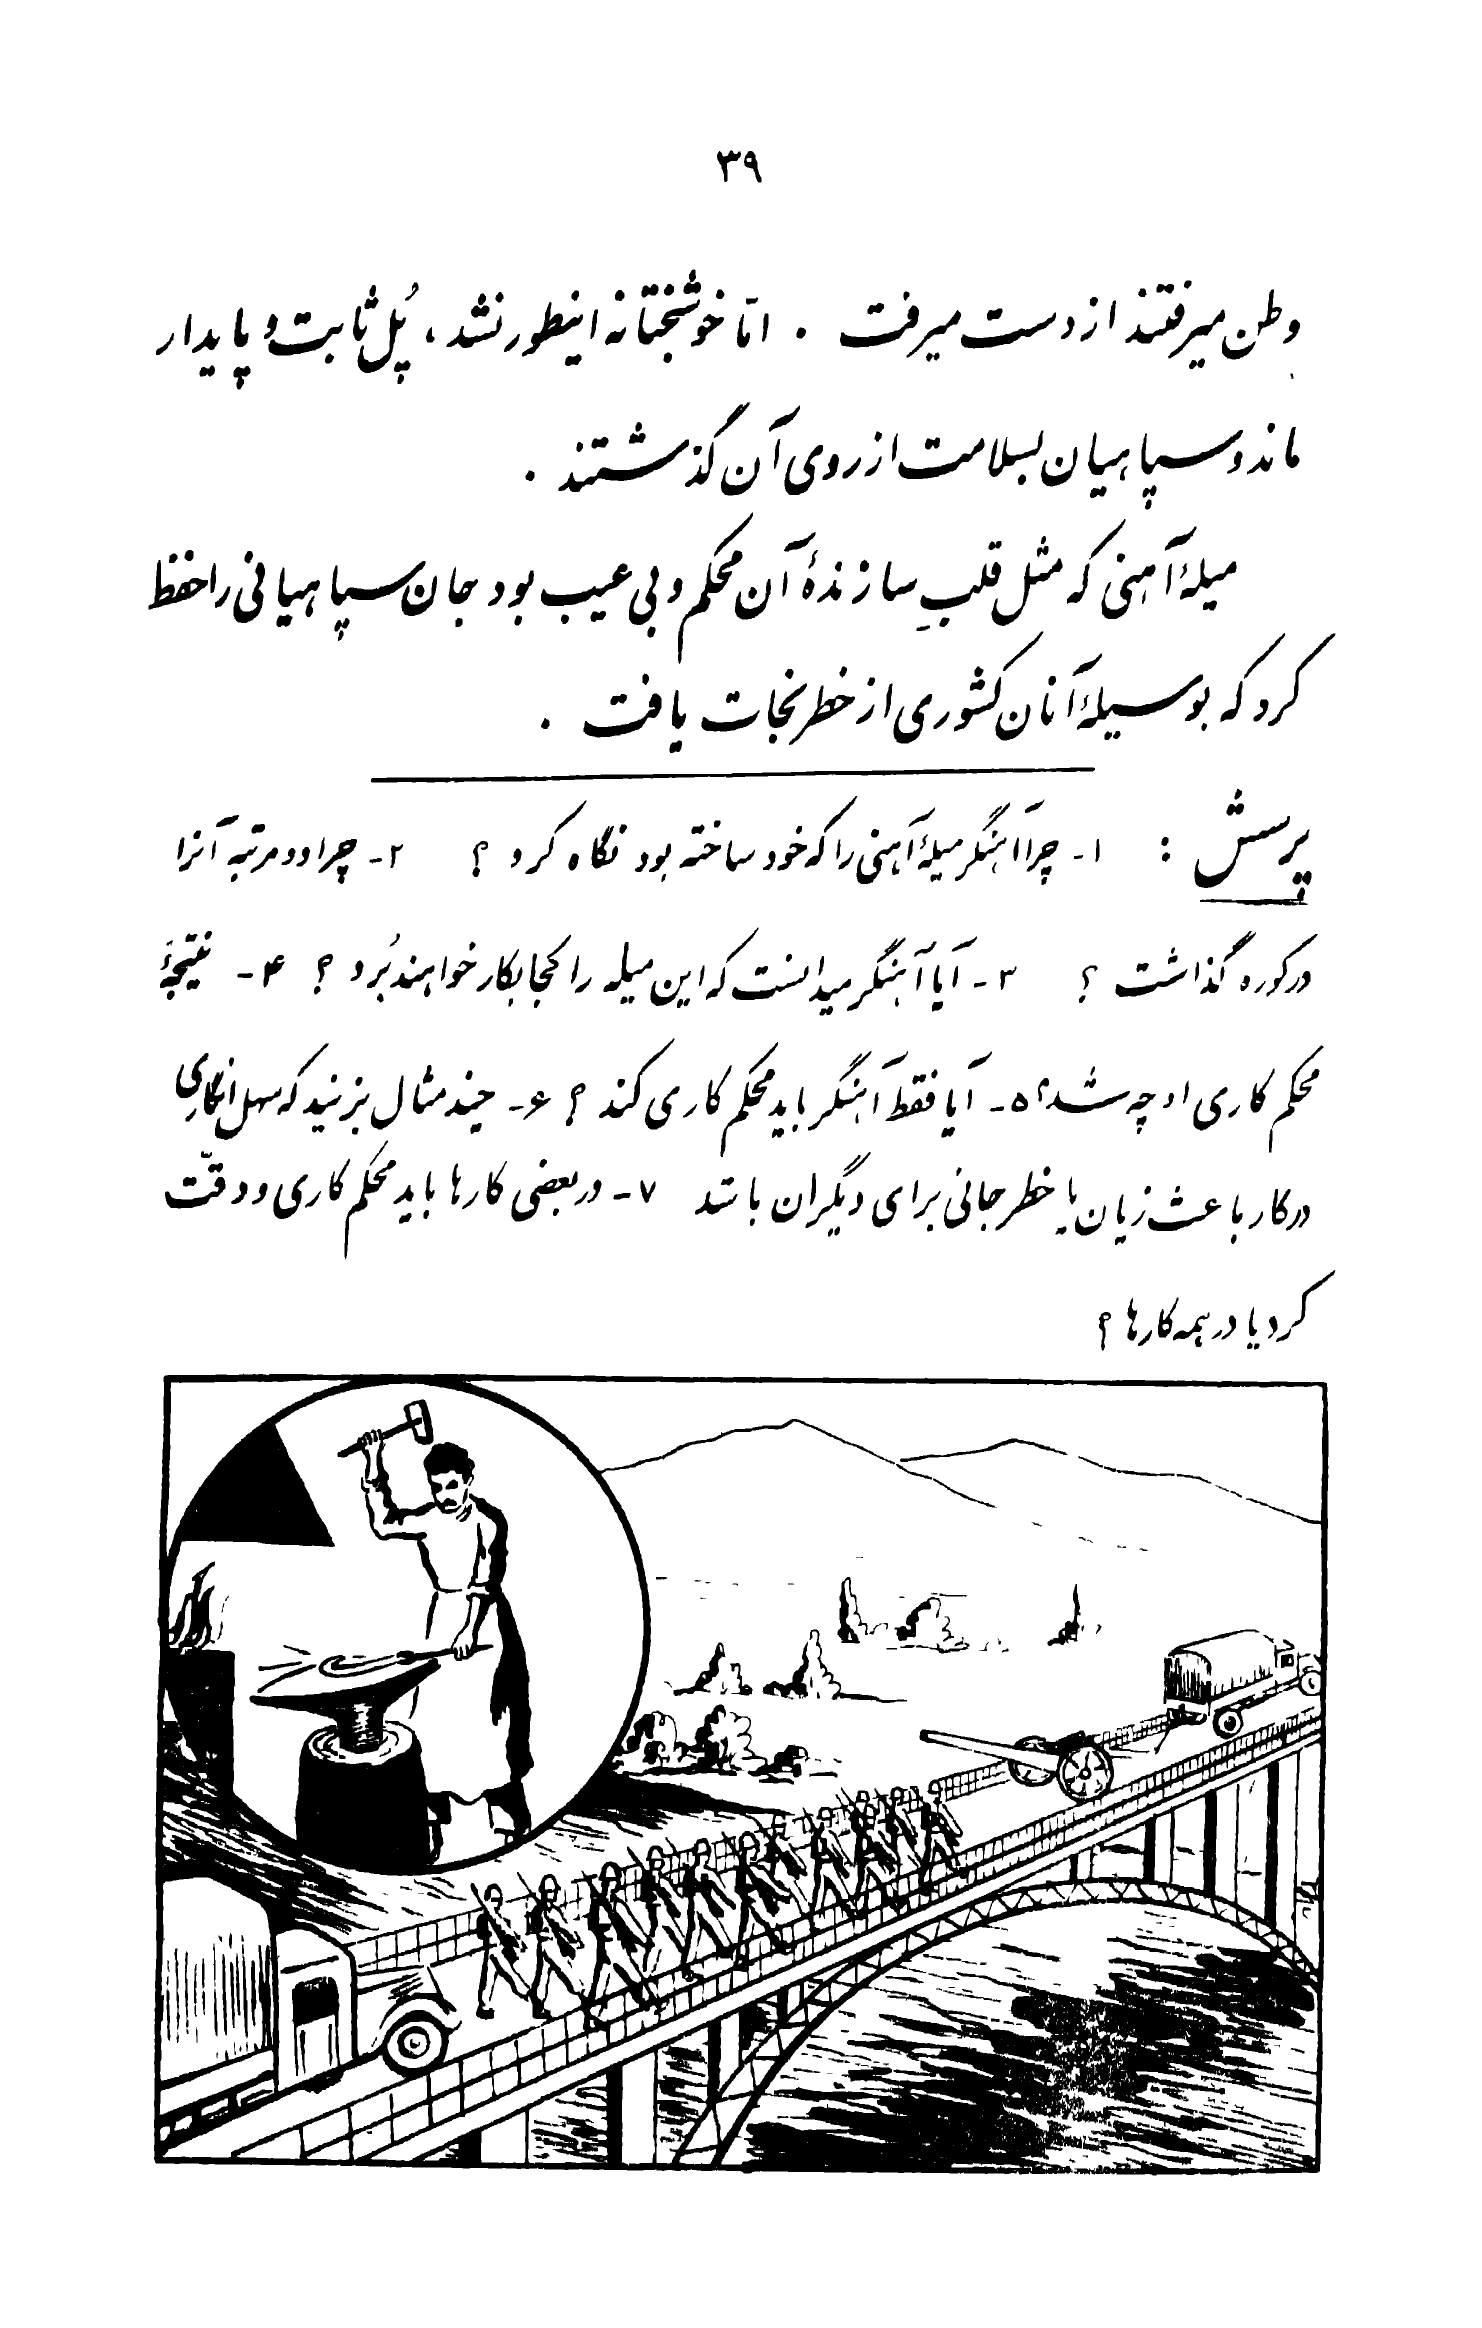 ۳۹
وطن میرفتند از دست میرفت . امّا خوشبختانه اینطور نشد، پُل ثابت و پایدار
ماند و سپاهیان بسلامت از روی آن گذشتند .
میلهٔ آهنی که مثل قلبِ سازندهٔ آن محکم و بی عیب بود جان سپاهیانی را حفظ
کرد که بوسیلهٔ آنان کشوری از خطر نجات یافت .
پرسش : ۱- چرا آهنگر میلهٔ آهنی را که خود ساخته بود نگاه کرد ؟ ۲- چرا دو مرتبه آنرا
در کوره گذاشت ؟ ۳- آیا آهنگر میدانست که این میله را کجا بکار خواهند بُرد ؟ ۴- نتیجهٔ
محکم کاری او چه شد؟ ۵- آیا فقط آهنگر باید محکم کاری کند ؟ ۶- چند مثال بزنید که سهل انگاری
در کار باعث زیان یا خطر جانی برای دیگران باشد ۷- در بعضی کارها باید محکم کاری و دقّت
کرد یا در همه کارها ؟